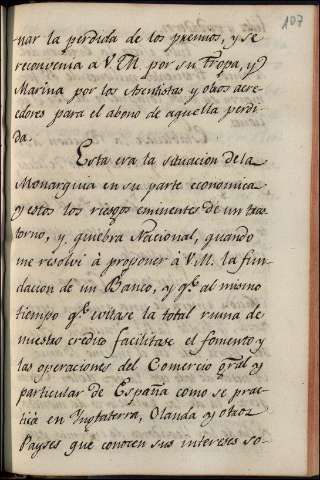 107
nar la perdida de los premios, y se
reconvenia a V.M. por su Tropa, y
Marina por los Asentistas y otros acre-
edores para el abono de aquella perdi-
da.
Esta era la situacion de la
Monarquia en su parte economica
y estos los riesgos eminentes de un tras
torno, y quiebra Nacional, quando
me resolvi à proponer à V.M. la fun-
dacion de un Banco, y q.e al mismo
tiempo q.e evitase la total ruina de
nuestro credito facilitase el fomento y
las operaciones del Comercio gral y
particular de España como se prac-
tica en Inglaterra, Olanda y otros
Payses que conocen sus intereses so-